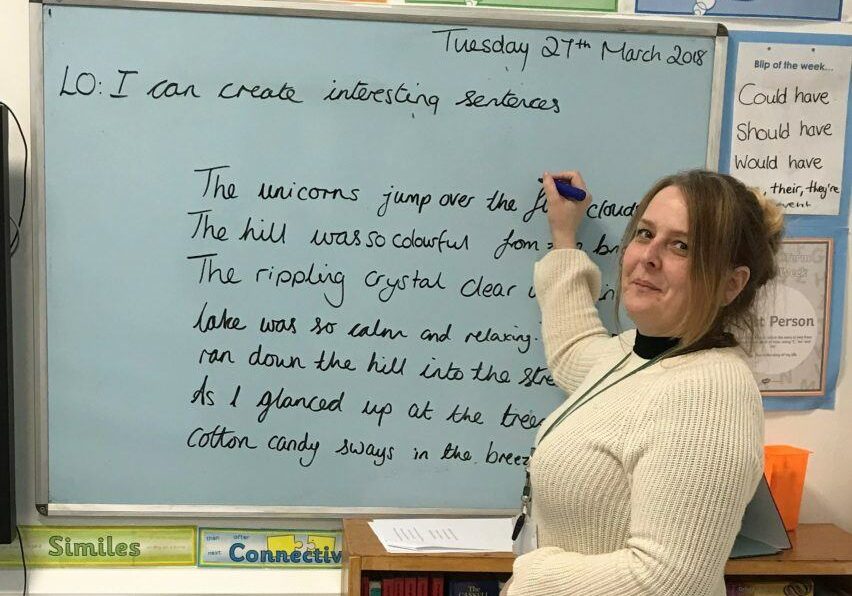 Tuesday 27th March 2018
LO: I can create interesting sentences
The unicorns jump over the clouds
The hill was so colourful from
The rippling crystal clear
lake was so calm and relaxing.
ran down the hill into the
As I glanced up at the
cotton candy sways in the
Blip of the week...
Could have
Should have
Would have
their, they're
Person
Similes
then after
next
The